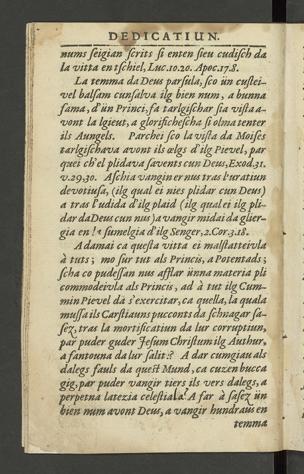 DEDICATIUN.
nums ſeigian ſcrits ſi enten ſieu cudiſch da
la vitta en tſchiel, Luc.10.20. Apoc.17.8.
La temma da Deus parſula, ſco ün cuſtei-
vel balſam cunſalva ilg bien num, a bunna
fama, d'ün Princi, fa tarlgiſchar ſia viſta a-
vont la lgieut, a glorificheſcha ſi olma tenter
ils Aungels. Parchei ſco la viſta da Moiſes
tarlgiſchava avont ils œlgs d'ilg Pievel, par
quei ch'el plidava ſavents cun Deus, Exod.31.
v.29,30. Aſchia vangin er nus tras l'uratiun
devotiuſa, (ilg qual ei nies plidar cun Deus)
a tras l'udida d'ilg plaid (ilg qual ei ilg pli-
dar da Deus cun nus) a vangir midai da glier-
gia en ſumelgia d'ilg Senger, 2.Cor.3.18.
Adamai ca queſta vitta ei malſtatteivla
à tuts; mo ſur tut als Princis, a Potentads;
ſcha co pudeſſan nus afflar ünna materia pli
commodeivla als Princis, ad à tut ilg Cum-
min Pievel da s'exercitar, ca quella, la quala
muſſa ils Carſtiauns pucconts da ſchnagar ſa-
ſez, tras la mortificatiun da lur corruptiun,
par puder guder Jeſum Chriſtum ilg Authur,
a fantouna da lur ſalit? A dar cumgiau als
dalegs fauls da queſt Mund, ca cuzen bucca
gig, par puder vangir tiers ils vers dalegs, a
perpetna latezia celeſtiala? A far à ſaſez ün
bien num avont Deus, a vangir hundraus en
temma